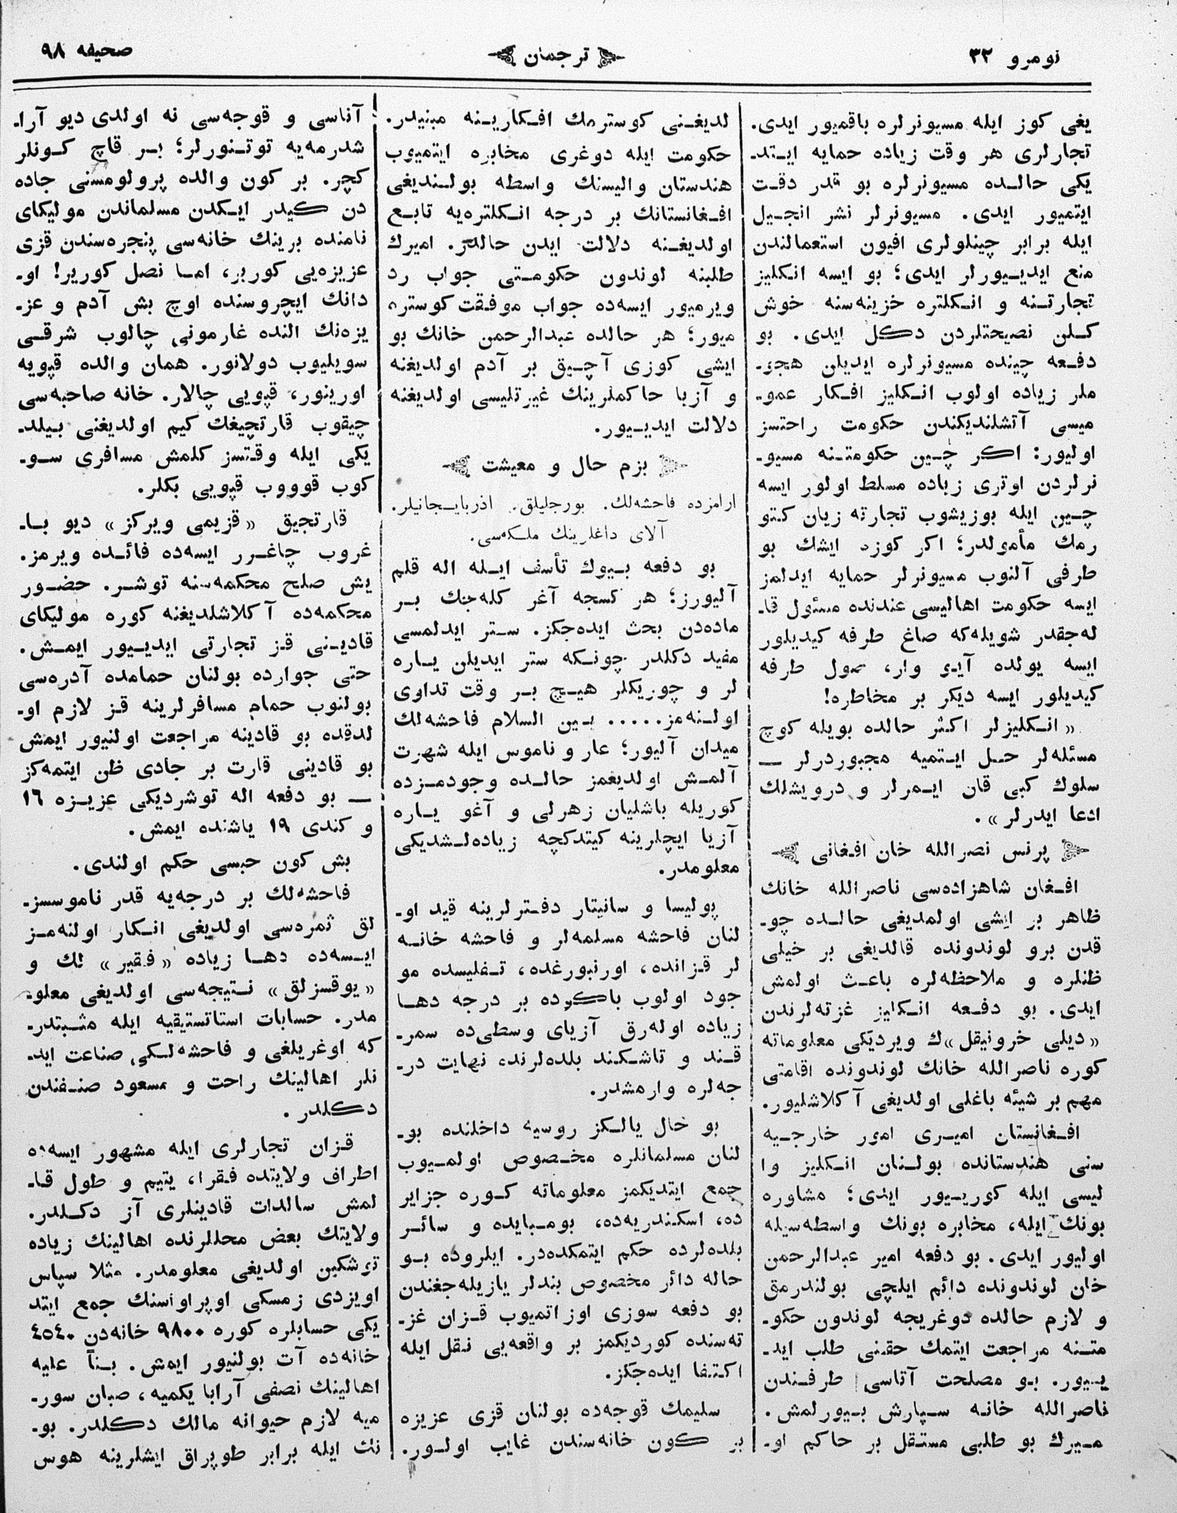 نومرو ٣٢
ترجمان
صحیفه ٩٨
یغی كوز ایله مسیونرلره باقمیور ایدی.
تجارلری هر وقت زیاده حمایه ایتد-
یكی حالده مسیونرلره بو قدر دقت
ایتمیور ایدی. مسیونرلر نشر انجیل
ایله برابر چینلولری افیون استعمالندن
منع ایدییورلر ایدی؛ بو ایسه انكلیز
تجارتنه و انكلتره خزینه‌سنه خوش
كلن نصیحتلردن دكل ایدی. بو
دفعه چینده مسیونرلره ایدیلن هجو-
ملر زیاده اولوب انكلیز افكار عمو-
میسی آتشلندیكندن حكومت راحتسز
اولیور: اكر چین حكومتنه مسیو-
نرلردن اوتری زیاده مسلط اولور ایسه
چین ایله بوزیشوب تجارته زیان كتو
رمك مأمولدر؛ اكر كوزه ایشك بو
طرفی آلنوب مسیونرلر حمایه ایدلمز
ایسه حكومت اهالیسی عندنده مسئول قا-
له‌جقدر شویله‌كه صاغ طرفه كیدیلور
ایسه یولده آیو وار، صول طرفه
كیدیلور ایسه دیكر بر مخاطره!
« انكلیزلر اكثر حالده بویله كوچ
مسئله‌لر حل ایتمیه مجبوردرلر —
سلوك كبی قان ایمرلر و درویشلك
ادعا ایدرلر ».
پرنس نصرالله خان افغانی
افغان شاهزاده‌سی ناصرالله خانك
ظاهر بر ایشی اولمدیغی حالده چو-
قدن برو لوندونده قالدیغی بر خیلی
ظنلره و ملاحظه‌لره باعث اولمش
ایدی. بو دفعه انكلیز غزته‌لرندن
«دیلی خرونیقل»ك ویردیكی معلوماته
كوره ناصرالله خانك لوندونده اقامتی
مهم بر شیئه باغلی اولدیغی آكلاشلیور.
افغانستان امیری امور خارجیه
سنی هندستانده بولنان انكلیز وا
لیسی ایله كوریبور ایدی؛ مشاوره
بونك ایله، مخابره بونك واسطه‌سیله
اولیور ایدی. بو دفعه امیر عبدالرحمن
خان لوندونده دائم ایلچی بولندرمق
و لازم حالده دوغریجه لوندون حكو-
متنه مراجعت ایتمك حقنی طلب اید-
ییور. بو مصلحت آتاسی طرفندن
ناصرالله خانه سپارش بیورلمش.
میرك بو طلبی مستقل بر حاكم او-
لدیغنی كوسترمك افكارینه مبنیدر.
حكومت ایله دوغری مخابره ایتمیوب
هندستان والیسنك واسطه بولندیغی
افغانستانك بر درجه انكلتره‌یه تابع
اولدیغنه دلالت ایدن حالدر. امیرك
طلبنه لوندون حكومتی جواب رد
ویرمیور ایسه‌ده جواب موفقت كوستره
میور؛ هر حالده عبدالرحمن خانك بو
ایشی كوزی آچیق بر آدم اولدیغنه
و آزیا حاكملرینك غیرتلیسی اولدیغنه
دلالت ایدییور.
بزم حال و معیشت
ارامزده فاحشه‌لك. بورجلیلق. اذربایجانیلر.
آلای داغلرینك ملكه‌سی.
بو دفعه بیوك تأسف ایله اله قلم
آلیورز؛ هر كسجه آغر كله‌جك بر
ماده‌دن بحث ایده‌جكز. ستر ایدلمسی
مفید دكلدر چونكه ستر ایدیلن یاره
لر و چوریكلر هیچ بر وقت تداوی
اولنه‌مز..... بین السلام فاحشه‌لك
میدان آلیور؛ عار و ناموس ایله شهرت
آلمش اولدیغمز حالده وجودمزده
كوریله باشلیان زهرلی و آغو یاره
آزیا ایچلرینه كیتدكچه زیاده‌لشدیكی
معلومدر.
پولیسا و سانیتار دفترلرینه قید او-
لنان فاحشه مسلمه‌لر و فاحشه خانه
لر قزانده، اورنبورغده، تفلیسده مو
جود اولوب باكوده بر درجه دها
زیاده اوله‌رق آزیای وسطی‌ده سمر-
قند و تاشكند بلده‌لرنده نهایت در-
جه‌لره وارمشدر.
بو حال یالكز روسیه داخلنده بو-
لنان مسلمانلره مخصوص اولمیوب
جمع ایتدیكمز معلوماته كوره جزایر
ده، اسكندریه‌ده، بومبایده و سائر
بلده‌لرده حكم ایتمكده‌در. ایلروده بو
حاله دائر مخصوص بندلر یازیله‌جغندن
بو دفعه سوزی اوزاتمیوب قزان غز-
ته‌سنده كوردیكمز بر واقعه‌یی نقل ایله
اكتفا ایده‌جكز.
سلیمك قوجه‌ده بولنان قزی عزیزه
بر كون خانه‌سندن غایب اولور.
آناسی و قوجه‌سی نه اولدی دیو آرا-
شدرمه‌یه توتنورلر؛ بر قاچ كونلر
كچر. بر كون والده پرولومسنی جاده
دن كیدر ایكدن مسلماندن مولیكای
نامنده برینك خانه‌سی پنجره‌سندن قزی
عزیزه‌یی كورر، اما نصل كوریر! او-
دانك ایچروسنده اوچ بش آدم و عز-
یزه‌نك النده غارمونی چالوب شرقی
سویلیوب دولانور. همان والده قپویه
اورینور، قپویی چالار. خانه صاحبه‌سی
چیقوب قارتچیغك كیم اولدیغنی بیلد-
یكی ایله وقتسز كلمش مسافری سو-
كوب قوووب قپویی بكلر.
قارتجیق «قزیمی ویركز» دیو با-
غروب چاغرر ایسه‌ده فائده ویرمز.
یش صلح محكمه‌سنه توشر. حضور
محكمه‌ده آكلاشلدیغنه كوره مولیكای
قادینی قز تجارتی ایدییور ایمش.
حتی جوارده بولنان حمامده آدره‌سی
بولنوب حمام مسافرلرینه قز لازم او-
لدقده بو قادینه مراجعت اولنیور ایمش
بو قادینی قارت بر جادی ظن ایتمه‌كز
— بو دفعه اله توشردیكی عزیزه ١٦
و كندی ١٩ یاشنده ایمش.
بش كون حبسی حكم اولندی.
فاحشه‌لك بر درجه‌یه قدر ناموسسز-
لق ثمره‌سی اولدیغی انكار اولنه‌مز
ایسه‌ده دها زیاده «فقیر» لك و
«یوقسزلق» نتیجه‌سی اولدیغی معلو-
مدر. حسابات استاتستیقیه ایله مثبتدر-
كه اوغریلغی و فاحشه‌لكی صناعت اید-
نلر اهالینك راحت و مسعود صنفندن
دكلدر.
قزان تجارلری ایله مشهور ایسه‌ده
اطراف ولایتده فقرا، یتیم و طول قا-
لمش سالدات قادینلری آز دكلدر.
ولایتك بعض محللرنده اهالینك زیاده
توشكین اولدیغی معلومدر. مثلا سپاس
اویزدی زمسكی اوپراواسنك جمع ایتد
یكی حسابلره كوره ٩٨٠٠ خانه‌دن ٤٥٤٠
خانه‌ده آت بولنیور ایمش. بنآ علیه
اهالینك نصفی آرابا یكمیه، صبان سور-
میه لازم حیوانه مالك دكلدر. بو-
نك ایله برابر طوپراق ایشلرینه هوس